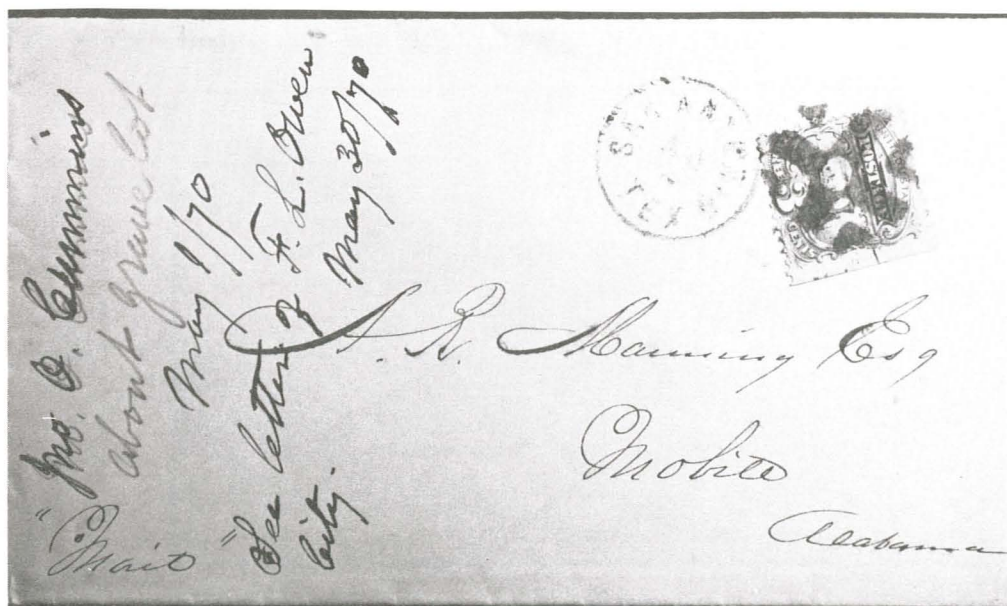 Jno. O. Cummins
about grave lot
May 1/70
See letter of F. L. Owen
May 30/70
City.
"Mail"
BRYAN
TEXAS
POSTAGE
A. R. Manning Esq
Mobile
Alabama